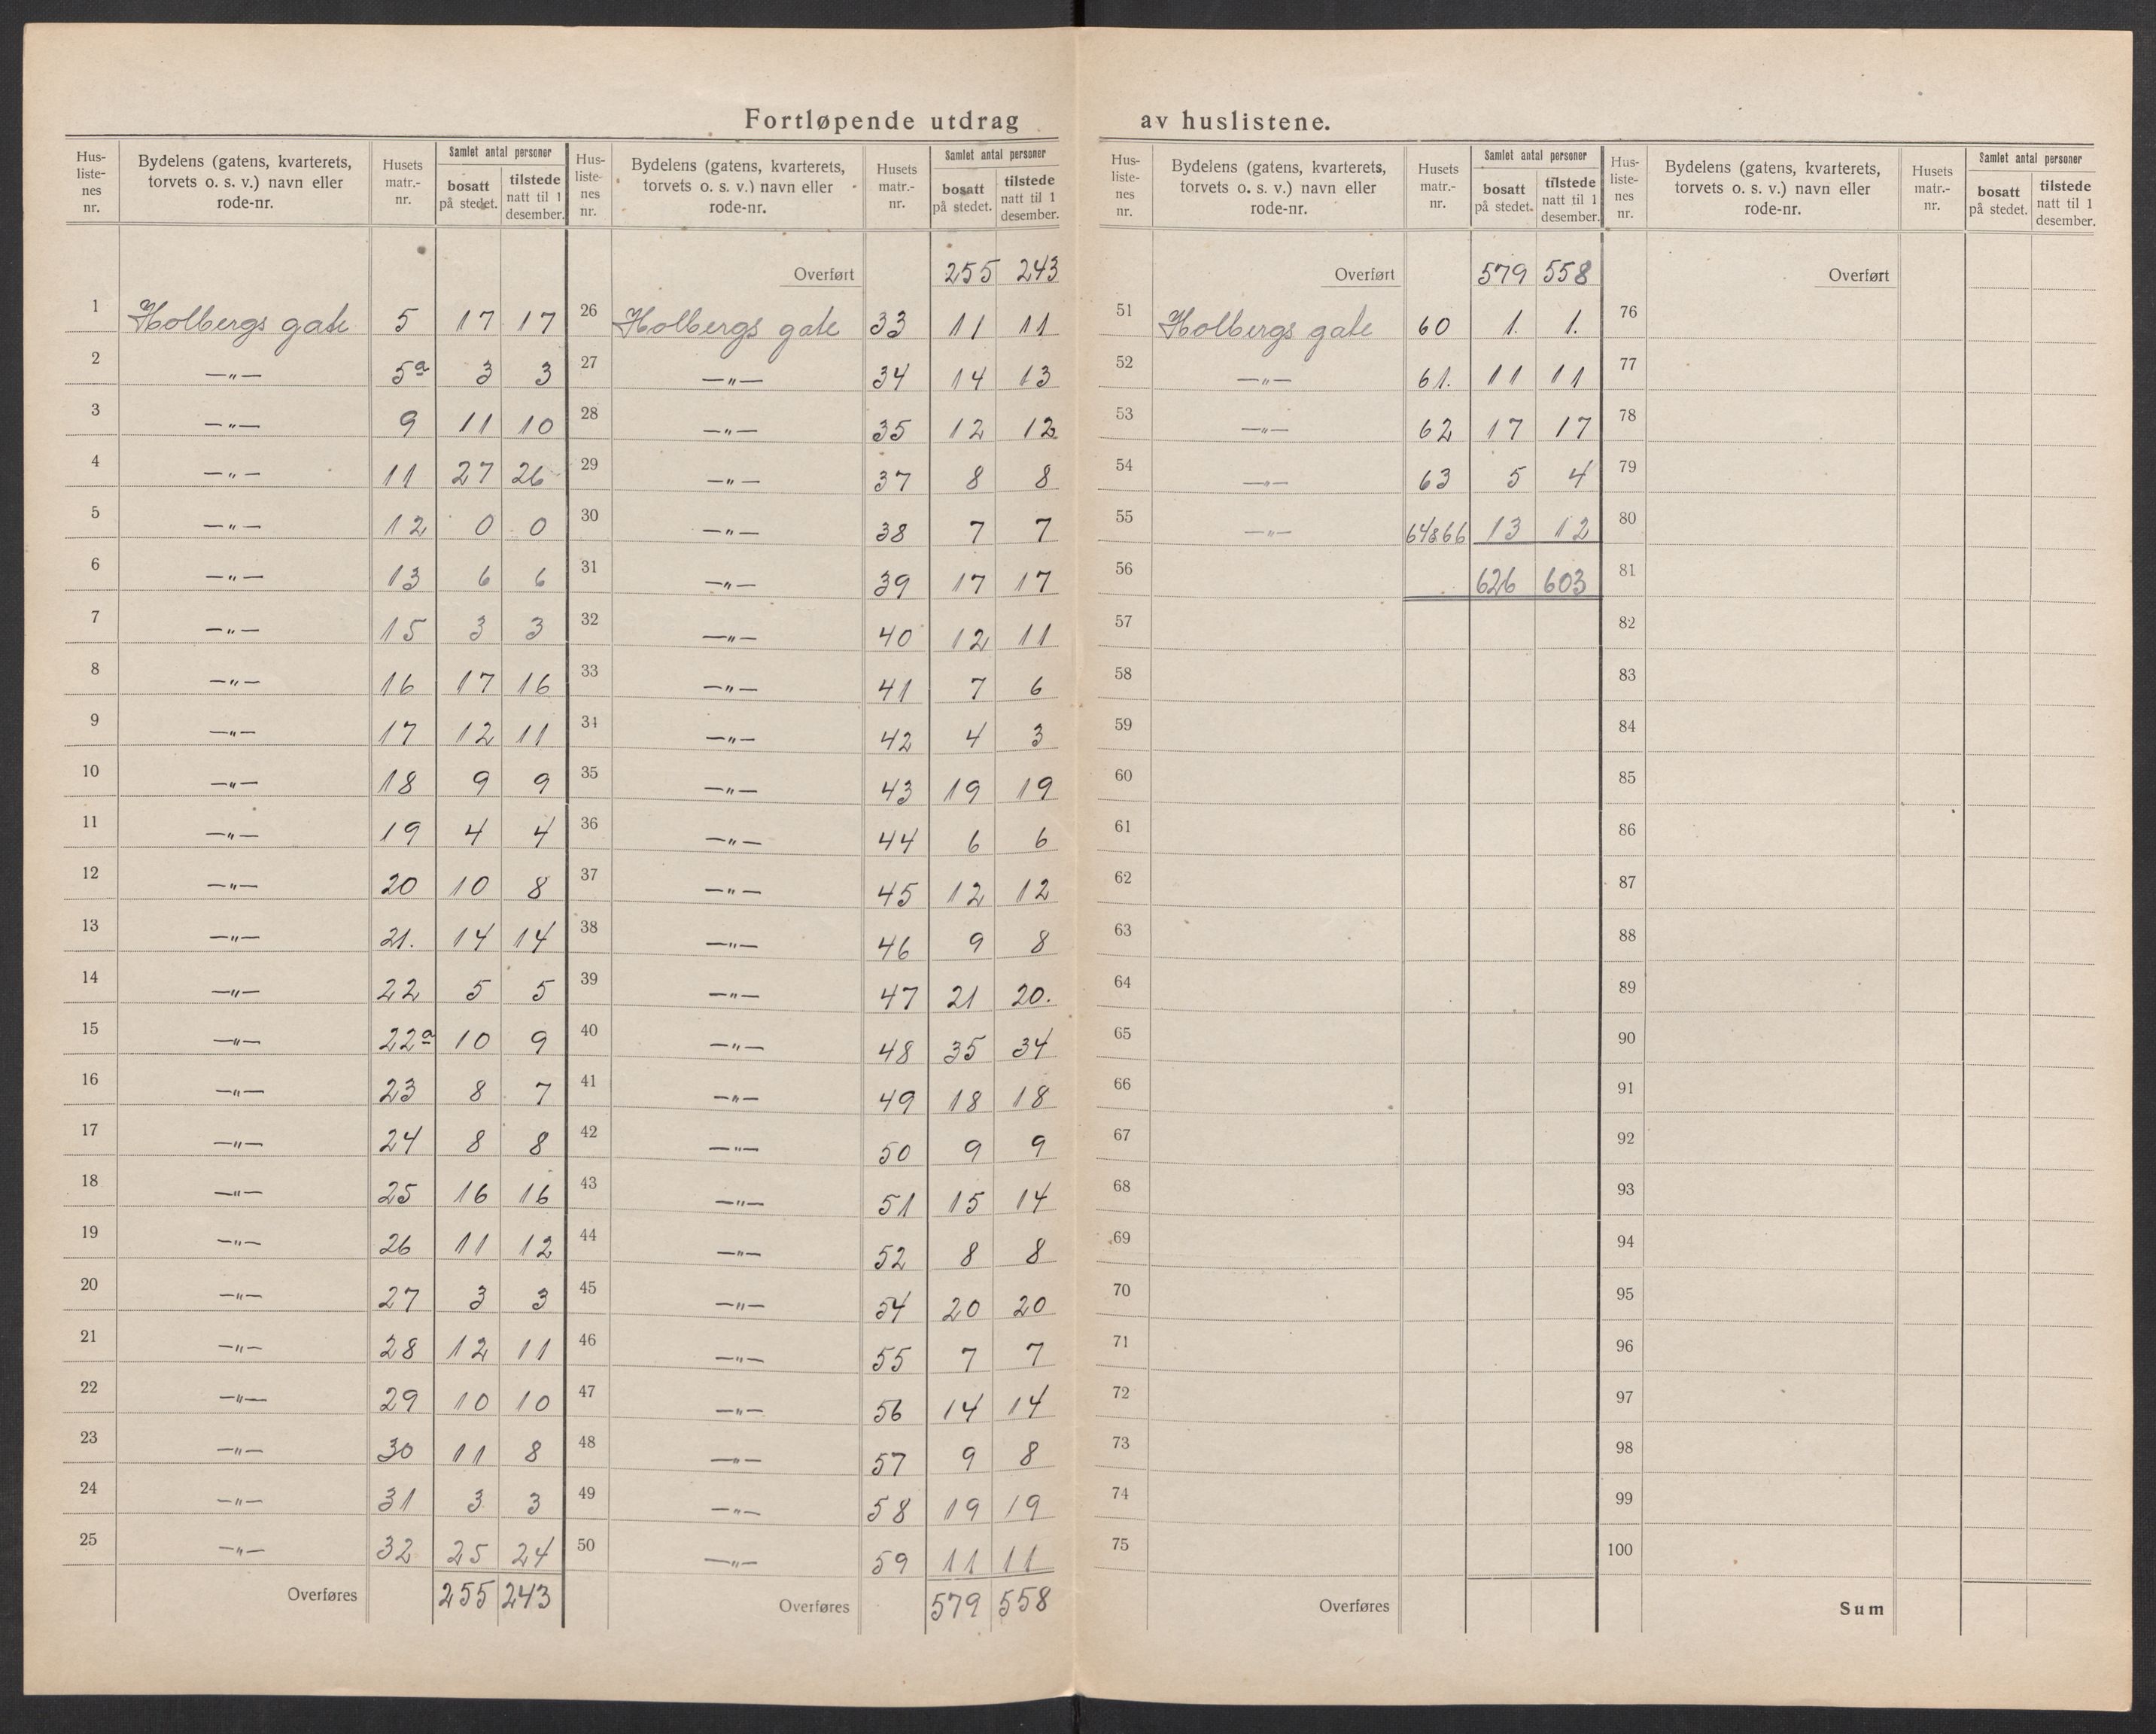 Fortløpende utdrag av huslistene.
Hus-listenes nr. | Bydelens (gatens, kvarterets, torvets o. s. v.) navn eller rode-nr. | Husets matr.-nr. | Samlet antal personer | bosatt på stedet. | tilstede natt til 1 desember.
1 Holbergs gate 5 17 17
2 —„— 5a 3 3
3 —„— 9 11 10
4 —„— 11 27 26
5 —„— 12 0 0
6 —„— 13 6 6
7 —„— 15 3 3
8 —„— 16 17 16
9 —„— 17 12 11
10 —„— 18 9 9
11 —„— 19 4 4
12 —„— 20 10 8
13 —„— 21. 14 14
14 —„— 22 5 5
15 —„— 22a 10 9
16 —„— 23 8 7
17 —„— 24 8 8
18 —„— 25 16 16
19 —„— 26 11 12
20 —„— 27 3 3
21 —„— 28 12 11
22 —„— 29 10 10
23 —„— 30 11 8
24 —„— 31 3 3
25 —„— 32 25 24
Overføres 255 243
Hus-listenes nr. | Bydelens (gatens, kvarterets, torvets o. s. v.) navn eller rode-nr. | Husets matr.-nr. | Samlet antal personer | bosatt på stedet. | tilstede natt til 1 desember.
Overført 255 243
26 Holbergs gate 33 11 11
27 —„— 34 14 13
28 —„— 35 12 12
29 —„— 37 8 8
30 —„— 38 7 7
31 —„— 39 17 17
32 —„— 40 12 11
33 —„— 41 7 6
34 —„— 42 4 3
35 —„— 43 19 19
36 —„— 44 6 6
37 —„— 45 12 12
38 —„— 46 9 8
39 —„— 47 21 20.
40 —„— 48 35 34
41 —„— 49 18 18
42 —„— 50 9 9
43 —„— 51 15 14
44 —„— 52 8 8
45 —„— 54 20 20
46 —„— 55 7 7
47 —„— 56 14 14
48 —„— 57 9 8
49 —„— 58 19 19
50 —„— 59 11 11
Overføres 579 558
Hus-listenes nr. | Bydelens (gatens, kvarterets, torvets o. s. v.) navn eller rode-nr. | Husets matr.-nr. | Samlet antal personer | bosatt på stedet. | tilstede natt til 1 desember.
Overført 579 558
51 Holbergs gate 60 1. 1.
52 —„— 61. 11 11
53 —„— 62 17 17
54 —„— 63 5 4
55 —„— 64&66 13 12
56 626 603
57
58
59
60
61
62
63
64
65
66
67
68
69
70
71
72
73
74
75
Overføres
Hus-listenes nr. | Bydelens (gatens, kvarterets, torvets o. s. v.) navn eller rode-nr. | Husets matr.-nr. | Samlet antal personer | bosatt på stedet. | tilstede natt til 1 desember.
Overført
76
77
78
79
80
81
82
83
84
85
86
87
88
89
90
91
92
93
94
95
96
97
98
99
100
Sum